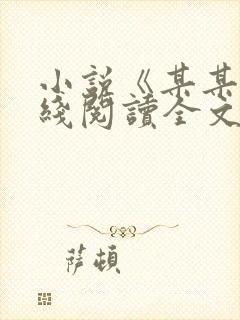 小説《某某
綫閱讀全文
薩頓